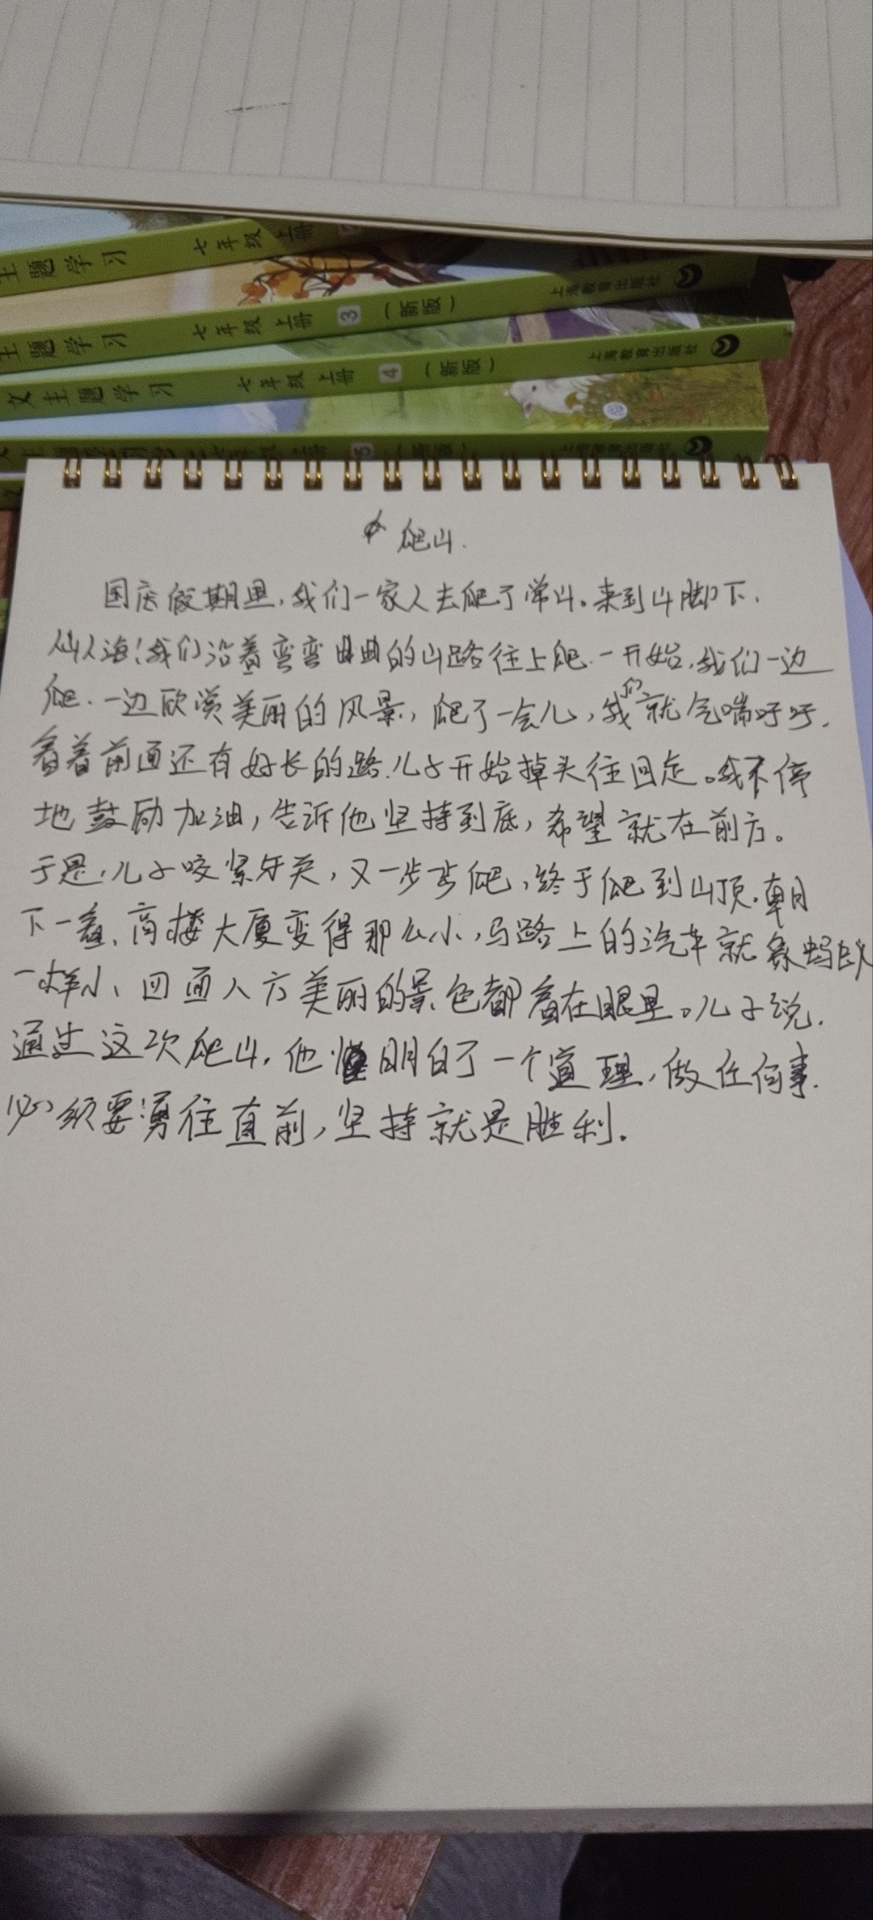 主题学习 七年级 上册
主题学习 七年级 上册 3 (新版) 上海教育出版社
文主题学习 七年级 上册 4 (新版) 上海教育出版社
上册 5 (新版) 上海教育出版社
爬山.
国庆假期里,我们一家人去爬了常山。来到山脚下,
人山人海!我们沿着弯弯曲曲的山路往上爬.一开始,我们一边
爬.一边欣赏美丽的风景,爬了一会儿,我们就气喘吁吁.
看着前面还有好长的路.儿子开始掉头往回走。我不停
地鼓励加油,告诉他坚持到底,希望就在前方。
于是,儿子咬紧牙关,又一步步爬,终于爬到山顶.朝
下一看、高楼大厦变得那么小,马路上的汽车就象蚂蚁
一样小、四面八方美丽的景色都看在眼里。儿子说.
通过这次爬山.他明白了一个道理,做任何事.
必须要勇往直前,坚持就是胜利.